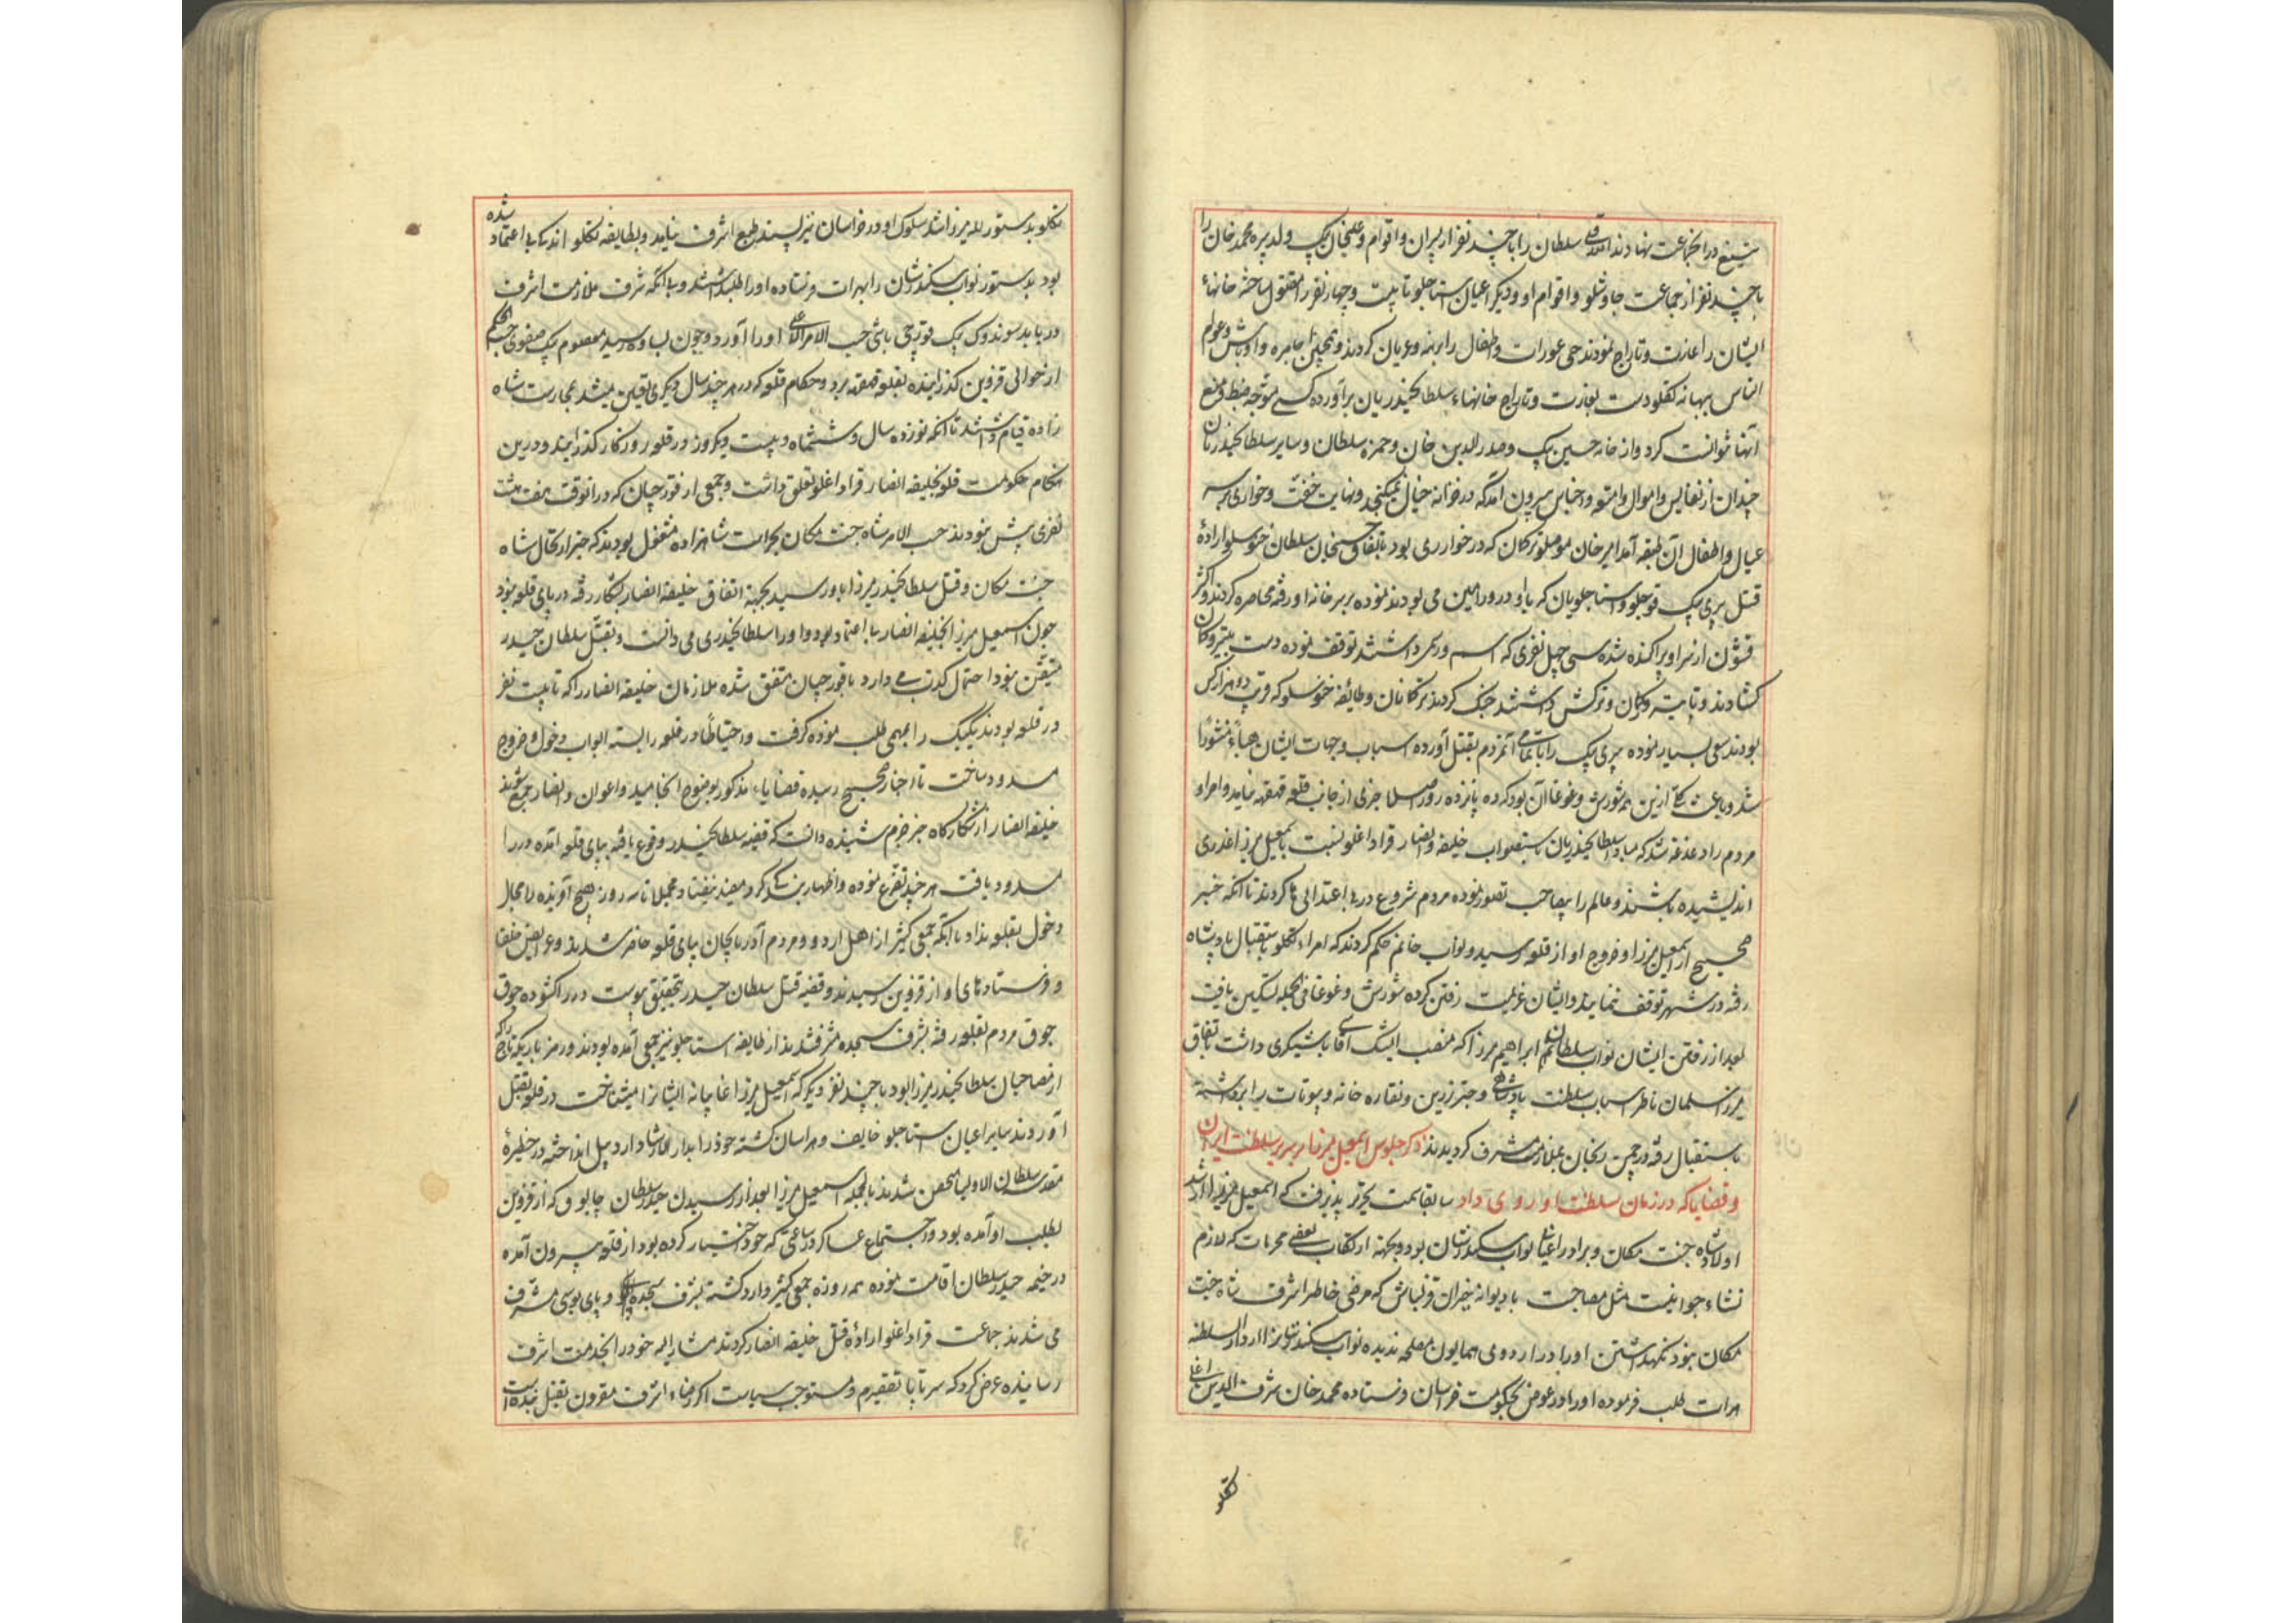 تیغ در آنجماعت نهادند الله قلی سلطان را با چند نفر از پسران و اقوام و علیخان بیک ولد پیره محمد خان را
با چند نفر از جماعت چاوشلو و اقوام او و دیگر اعیان استاجلو تا بیست و چهار نفر را مقتول ساخته خانهاء
ایشان را غارت و تاراج نمودند حتی عورات و اطفال را برهنه و عریان کردند و همچنین اجامره و اوباش و عوام
الناس ببهانه تکلو دست بغارت و تاراج خانهاء سلطانحیدریان برآورده کسی متوجه ضبط و منع
آنها نتوانست کرد و از خانه حسین بیک و صدرالدین خان و حمزه سلطان و سایر سلطانحیدریان
چندان از نفایس و اموال و امتعه و اجناس بیرون آمد که در خزانه خیال نمیگنجد و نهایت خفت و خواری بر سر
عیال و اطفال آن طبقه آمد امیر خان موصلو ترکمان که در خوار ری بود باتفاق حسینجان سلطان خنوسلو اراده
قتل پری بیک قوجلو و استاجلویان که با او در ورامین می بودند نموده بر سر خانه او رفته محاصره کردند و اکثر
قشون از سر او پراکنده شده سی چهل نفری که اسم و رسمی داشتند توقف نموده دست به تیر و کمان
کشادند و تا تیر و کمان و ترکش داشتند جنگ کردند ترکمانان و طایفه خنوسلو که قریب دو هزار کس
بودند سعی بسیار نموده پری بیک را با تمامی آنمردم بقتل آورده اسباب و جهات ایشان هباءً منثورا
شد و باعث کلی ازین همه شورش و غوغا آن بود که ده پانزده روز اصلا خبری از جانب قلعه قهقهه نیامد و امرا و
مردم را دغدغه شد که مبادا سلطانحیدریان باستصواب خلیفه انصار قراداغلو نسبت باسمعیل میرزا غدری
اندیشیده باشند و عالم را بیصاحب تصور نموده مردم شروع در بی اعتدالی ها کردند تا آنکه خبر
صحیح از اسمعیل میرزا و خروج او از قلعه رسید و نواب خانم حکم کردند که امراء تکلو باستقبال پادشاه
رفته در شهر توقف ننمایند و ایشان عزیمت رفتن کرده شورش و غوغا فی الجمله تسکین یافت
بعد از رفتن ایشان نواب سلطان ابراهیم میرزا که منصب ایشیک آقاسی باشیگری داشت باتفاق
میرزا سلمان ناظر اسباب سلطنت پادشاهی و چتر زرین و نقاره خانه و بیوتات را برداشته
باستقبال رفته در چمن زنجان بملازمت مشرف گردیدند ذکر جلوس اسمعیل میرزا بر سریر سلطنت ایران
و قضایا که در زمان سلطنت او روی داد سابقا سمت تحریر پذیرفت که اسمعیل میرزا ارشد
اولاد شاه جنت مکان و برادر اعیانی نواب سکندرشان بود و بجهة ارتکاب بعضی محرمات که لازم
نشاء جوانیست مثل مصاحبت با دیوانه نیخبران قزلباش که مرضی خاطر اشرف شاه جنت
مکان نبود نگهداشتن او را در اردوی همایون مصلحه ندیده نواب سکندرشان را از دارالسلطنه
هرات طلب فرموده او را در عوض بحکومت خراسان فرستاده محمد خان شرف الدین اغلی
تکلو
تکلو بدستور لله میرزا شد سلوک او در خراسان نیز پسند طبع اشرف نیامد و بطایفه تکلو اندک بی اعتماد شده
بود بدستور نواب سکندرشان را بهرات فرستاده او را طلب داشتند و بی آنکه شرف ملازمت اشرف
دریابد سوندوک بیک قورچی باشی حسب الامر الاعلی او را آورد و چون بساوه رسید معصوم بیک صفوی حسب الحکم
از حوالی قزوین گذرانیده بقلعه قهقهه برد و حکام قلعه که در هر چند سال دیگری تعیین میشد بحارست شاه
زاده قیام داشتند تا آنکه نوزده سال و ششماه و بیست و یکروز در قلعه روزگار گذرانید و درین
هنگام حکومت قلعه بخلیفه انصار قراداغلو تعلق داشت و جمعی از قورچیان که در آنوقت هفت هشت
نفری بیش نبودند حسب الامر شاه جنت مکان بحراست شاهزاده مشغول بودند که خبر ارتحال شاه
جنت مکان و قتل سلطانحیدر میرزا باو رسید بجهة اتفاق خلیفه انصار بشکار رفته در پای قلعه نبود
چون اسمعیل میرزا بخلیفه انصار بی اعتماد بود و او را سلطانحیدری می دانست و بقتل سلطان حیدر
متیقن نبود احتمال کذب می داد با قورچیان متفق شده ملازمان خلیفه انصار را که تا بیست نفر
در قلعه بودند یک یک را بمهمی طلب نموده گرفت و احتیاطا در قلعه را بسته ابواب دخول و خروج
مسدود ساخت تا اخبار صحیح رسیده قضایاء مذکور بوضوح انجامید و اعوان و انصار جمع شوند
خلیفه انصار از شکارگاه خبر خرم شنیده دانست که قضیه سلطانحیدر وقوع یافته بپای قلعه آمده در را
مسدود یافت هر چند تضرع نموده و اظهار بندگی کرد مفید نیفتاد و مجملا تا سه روز هیچ آفریده را مجال
دخول بقلعه نداد تا آنکه جمعی کثیر از اهل اردو و مردم آذربایجان بپای قلعه حاضر شدند و عرایض خلفا
و فرستادهای او از قزوین رسیدند و قضیه قتل سلطان حیدر بتحقیق پیوست در را گشوده جوق
جوق مردم بقلعه رفته بشرف سجده مشرف شدند از طایفه استاجلو نیز جمعی آمده بودند و رمزیار بیک را که
از مصاحبان سلطانحیدر میرزا بود با چند نفر دیگر که اسمعیل میرزا غایبانه ایشانرا میشناخت در قلعه بقتل
آوردند سایر اعیان استاجلو خایف و هراسان گشته خود را بدار الارشاد اردبیل انداخته در حظیره
مقدسه سلطان الاولیا متحصن شدند بالجمله اسمعیل میرزا بعد از رسیدن حیدر سلطان چابوق که از قزوین
بطلب او آمده بود و اجتماع عساکر در ساعتی که خود اختیار کرده بود از قلعه بیرون آمده
در خیمه حیدر سلطان اقامت نموده همه روزه جمعی کثیر وارد گشته بشرف سجده و پای بوسی مشرف
می شدند جماعت قراداغلو اراده قتل خلیفه انصار کردند مشار الیه خود را بخدمت اشرف
رسانیده عرض کرد که سر تا پا تقصیرم و مستوجب سیاست اگر رضاء اشرف مقرون بقتل بنده است